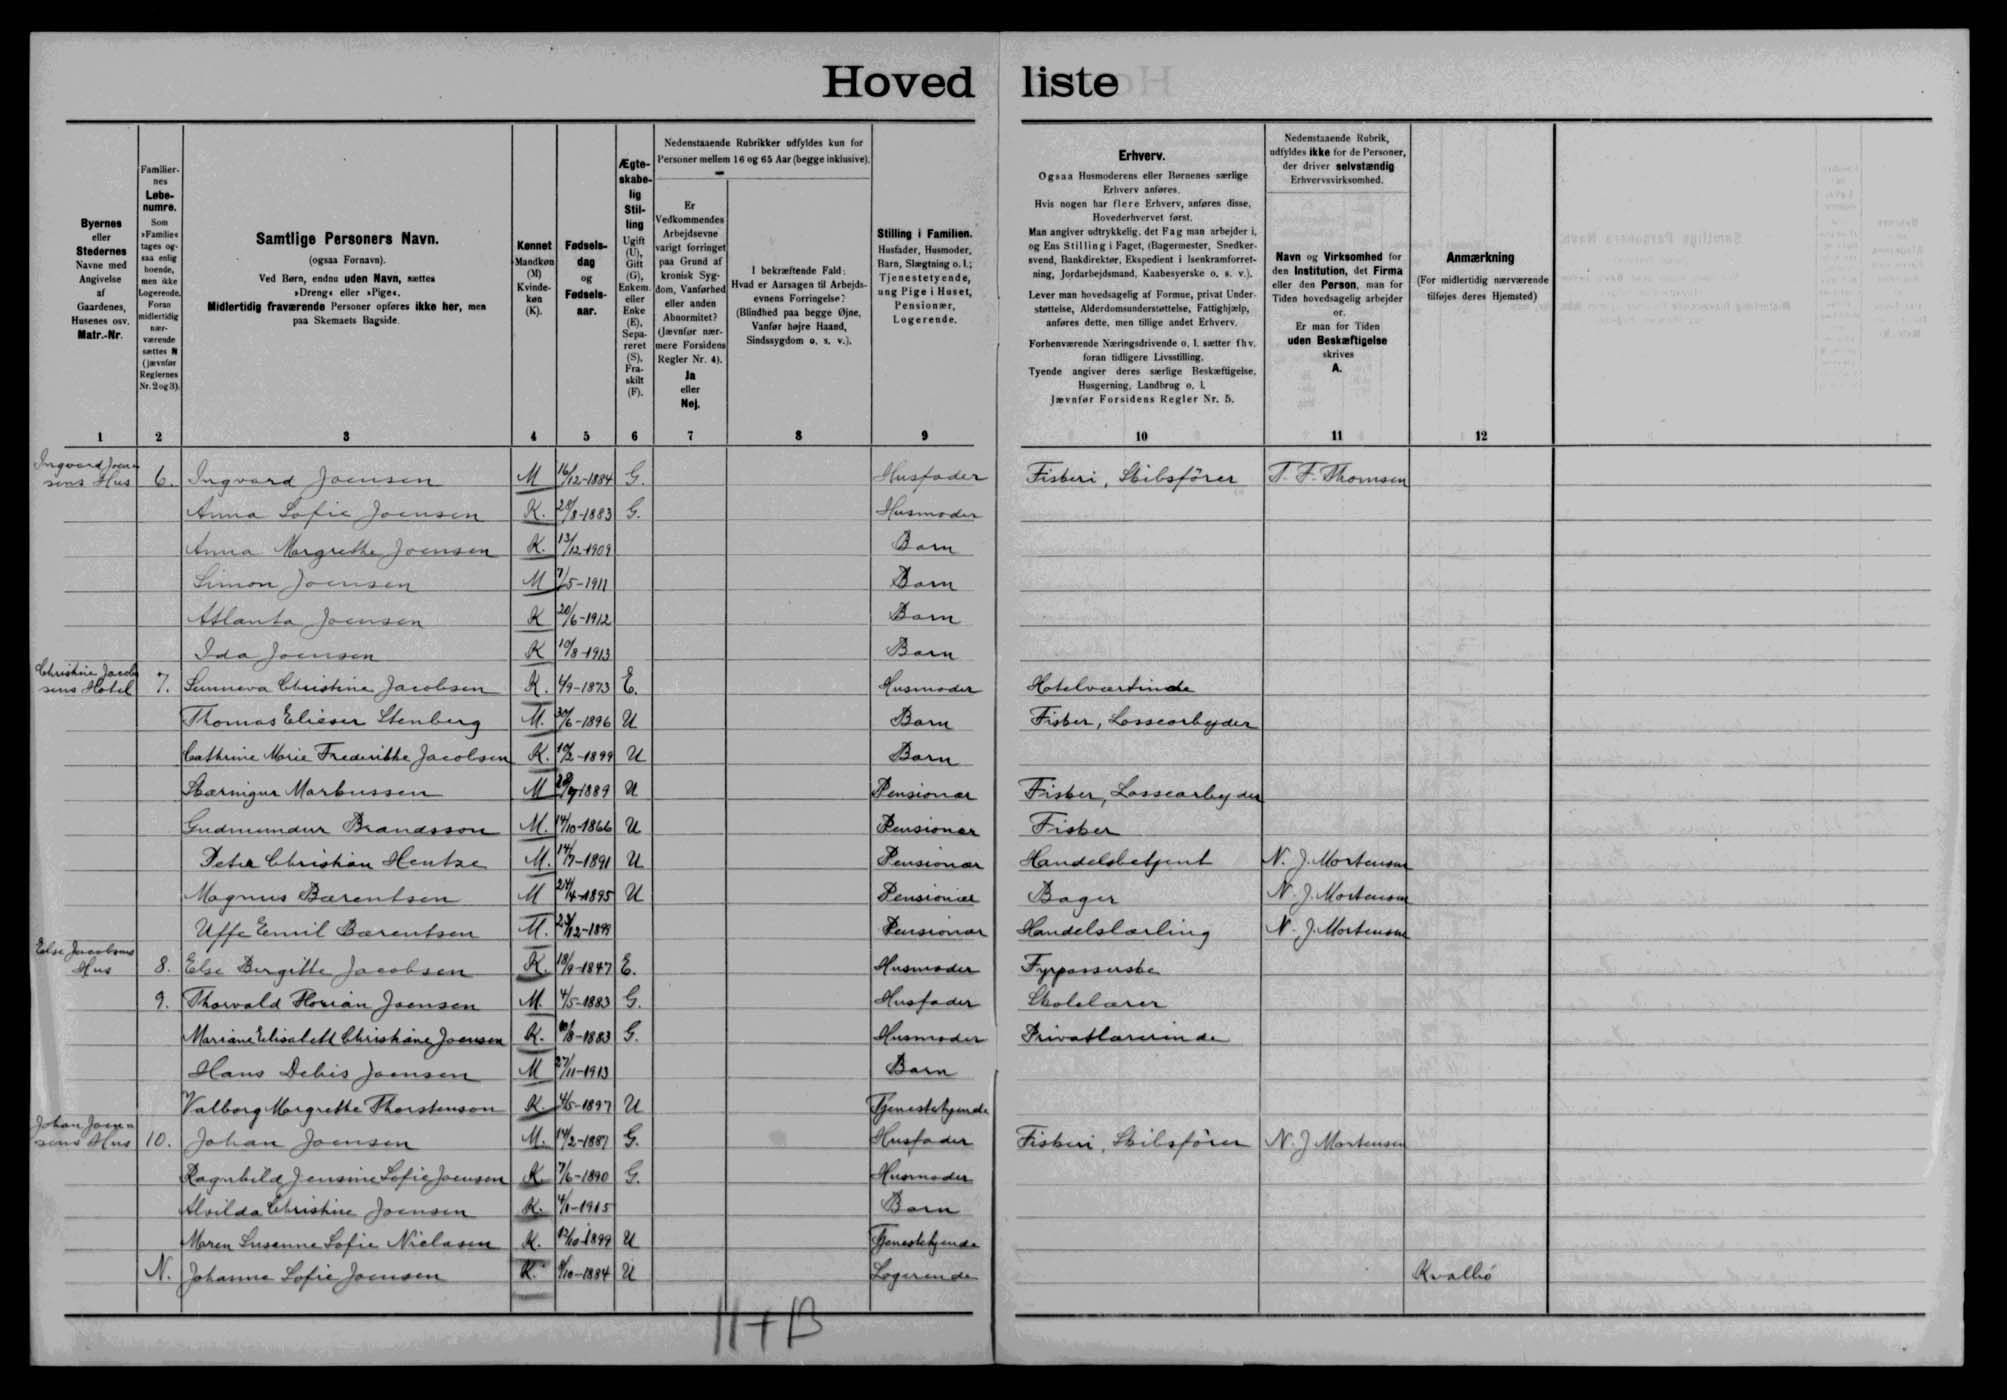 Hovedliste
Byernes
eller
Stedernes
Navne med
Angivelse
af
Gaardenes,
Husenes osv.
Matr.-Nr.
Familiernes
Løbenumre.
Som
»Familie«
tages ogsaa enlig
boende,
men ikke
Logerende.
Foran
midlertidig
nærværende
sættes N
(jævnfør
Reglernes
Nr. 2 og 3).
Samtlige Personers Navn.
(ogsaa Fornavn).
Ved Børn, endnu uden Navn, sættes
»Dreng« eller »Pige«.
Midlertidig fraværende Personer opføres ikke her, men
paa Skemaets Bagside.
Kønnet
Mandkøn
(M)
Kvindekøn
(K).
Fødselsdag
og
Fødselsaar.
Ægteskabelig
Stilling
Ugift
(U),
Gift
(G),
Enkem.
eller
Enke
(E),
Separeret
(S),
Fraskilt
(F).
Nedenstaaende Rubrikker udfyldes kun for
Personer mellem 16 og 65 Aar (begge inklusive).
Er
Vedkommendes
Arbejdsevne
varigt forringet
paa Grund af
kronisk Sygdom, Vanførhed
eller anden
Abnormitet?
(Jævnfør nærmere Forsidens
Regler Nr. 4).
Ja
eller
Nej.
I bekræftende Fald:
Hvad er Aarsagen til Arbejdsevnens Forringelse?
(Blindhed paa begge Øjne,
Vanfør højre Haand,
Sindssygdom o. s. v.).
Stilling i Familien.
Husfader, Husmoder,
Barn, Slægtning o. l.;
Tjenestetyende,
ung Pige i Huset,
Pensionær,
Logerende.
Erhverv.
Ogsaa Husmoderens eller Børnenes særlige
Erhverv anføres.
Hvis nogen har flere Erhverv, anføres disse,
Hovederhvervet først.
Man angiver udtrykkelig, det Fag man arbejder i,
og Ens Stilling i Faget, (Bagermester, Snedkersvend, Bankdirektør, Ekspedient i Isenkramforretning, Jordarbejdsmand, Kaabesyerske o. s. v.).
Lever man hovedsagelig af Formue, privat Understøttelse, Alderdomsunderstøttelse, Fattighjælp,
anføres dette, men tillige andet Erhverv.
Forhenværende Næringsdrivende o. l. sætter fhv.
foran tidligere Livsstilling.
Tyende angiver deres særlige Beskæftigelse,
Husgerning, Landbrug o. l.
Jævnfør Forsidens Regler Nr. 5.
Nedenstaaende Rubrik,
udfyldes ikke for de Personer,
der driver selvstændig
Erhvervsvirksomhed.
Navn og Virksomhed for
den Institution, det Firma
eller den Person, man for
Tiden hovedsagelig arbejder
for.
Er man for Tiden
uden Beskæftigelse
skrives
A.
Anmærkning
(For midlertidig nærværende
tilføjes deres Hjemsted)
1 2 3 4 5 6 7 8 9 10 11 12
Ingvard Joensens Hus 6. Ingvard Joensen M 16/12-1884 G. Husfader Fiskeri, Skibsfører T. F. Thomsen
Anna Sofie Joensen K. 28/8-1883 G. Husmoder
Anna Margrethe Joensen K. 13/12-1909 Barn
Simon Joensen M 7/5-1911 Barn
Atlanta Joensen K 20/6-1912 Barn
Ida Joensen K 10/8-1913 Barn
Christine Jacobsens Hotel 7. Sunneva Christine Jacobsen K. 4/9-1873 E. Husmoder Hotelværtinde
Thomas Elieser Stenberg M. 30/6-1896 U Barn Fisker, Lossearbejder
Cathrine Marie Frederikke Jacobsen K. 10/2-1899 U Barn
Skærningur Markussen M 1889 U Pensionær Fisker, Lossearbejder
Gudmundur Brandsson M. 14/10-1866 U Pensionær Fisker
Peter Christian Hentze M. 14/7-1891 U Pensionær Handelsbetjent N. J. Mortensen
Magnus Bærentsen M 24/4-1895 U Pensionær Bager N. J. Mortensen
Uffe Emil Bærentsen M. Pensionær Handelslærling N. J. Mortensen
Else Jacobsens Hus 8. Else Birgitte Jacobsen K. 18/9-1847 E. Husmoder Fyrpasserske
9. Thorvald Florian Joensen M. 4/5-1883 G. Husfader Skolelærer
Mariane Elisabett Christiane Joensen K. 10/8-1883 G. Husmoder Privatlærerinde
Hans Debis Joensen M 27/11-1913 Barn
Valborg Margrethe Thorstenson K. 4/5-1897 U Tjenestetyende
Johan Joensens Hus 10. Johan Joensen M. 14/2-1887 G. Husfader Fiskeri, Skibsfører N. J Mortensen
Ragnhild Jensine Sofie Joensen K. 7/6-1890 G. Husmoder
Alvilda Christine Joensen K. 4/1-1915 Barn
Maren Susanne Sofie Niclasen K. 12/10-1899 U Tjenestetyende
N. Johanne Sofie Joensen K. 9/10-1884 U Logerende Kvalbö
11+13